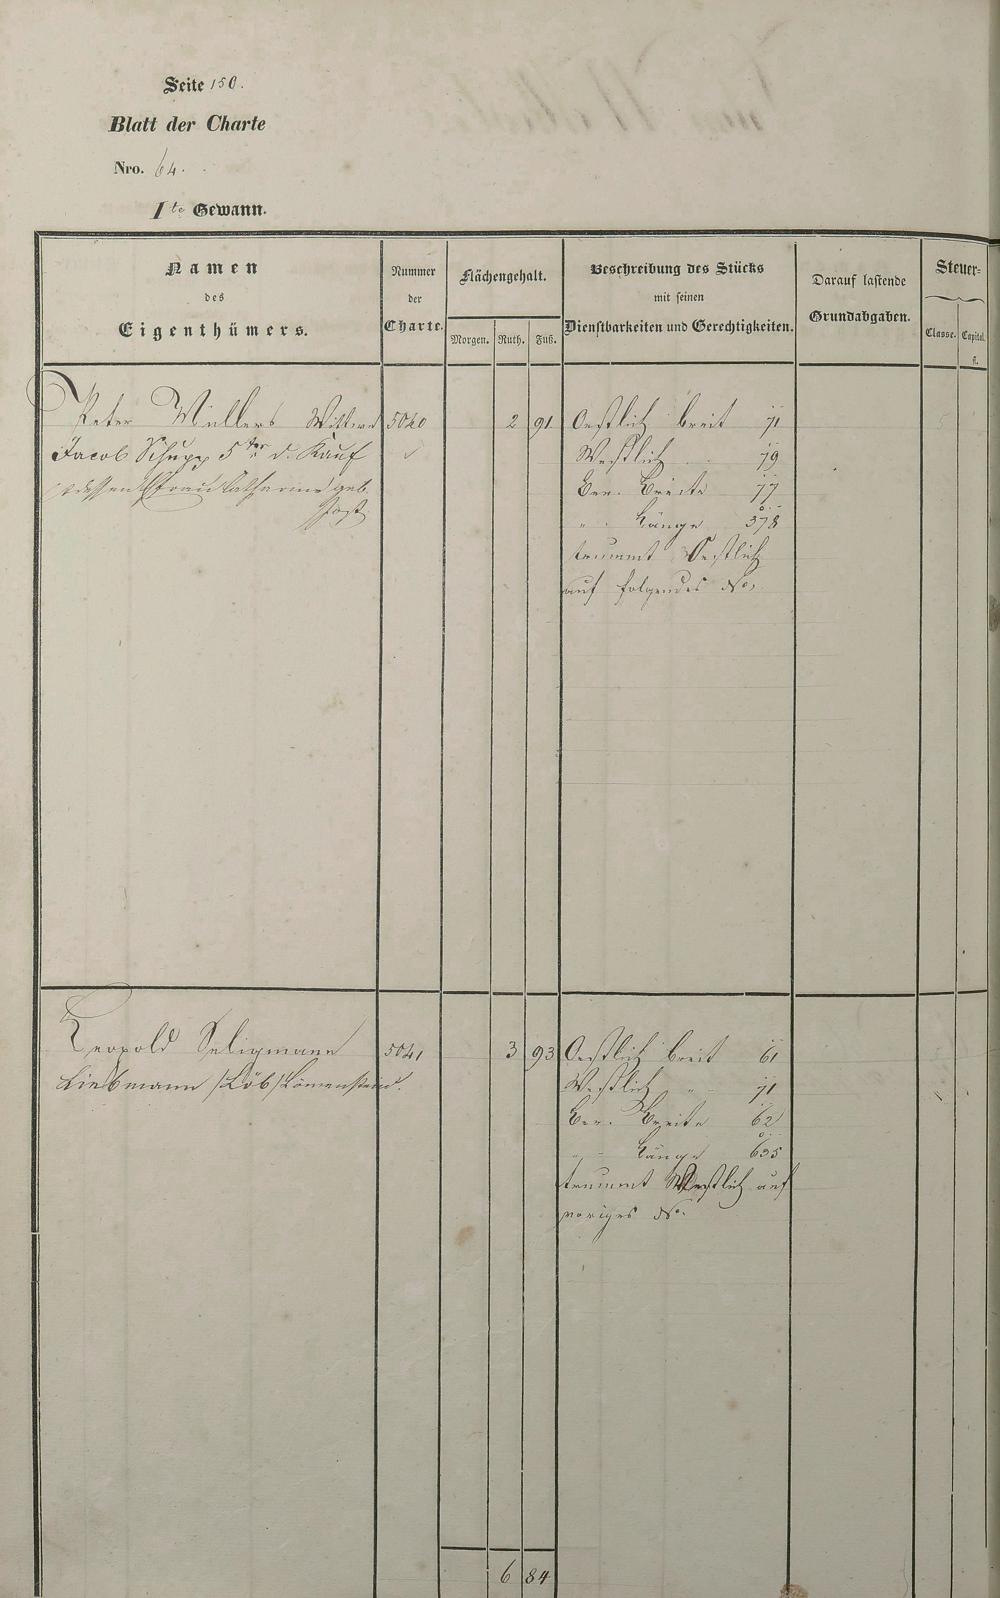 Seite 150.
Blatt der Charte
Nro. 64.
1te Gewann.
Namen
des
Eigenthümers.
Nummer
der
Charte.
Flächengehalt.
Morgen. Ruth. Fuß.
Beschreibung des Stücks
mit seinen
Dienstbarkeiten und Gerechtigkeiten.
Darauf lastende
Grundabgaben.
Steuer-
Classe. Capital.
fl.
Peter Müllers Wittwe 5040 2 91 Oestlich breit 71
Jacob Schupp 5ter d. Kauf Westlich 79
dessen Frau Catharine geb. Ber. Breite 77
Jost " Länge 378
trummt Oestlich
auf folgendes No.
Leopold Seligmann 5041 3 93 Oestlich breit 61
Liebmann /Löb/ Löwenstein. Westlich " 71
Ber. Breite 62
" Länge 635
trummt Westlich auf
voriges No.
6 84